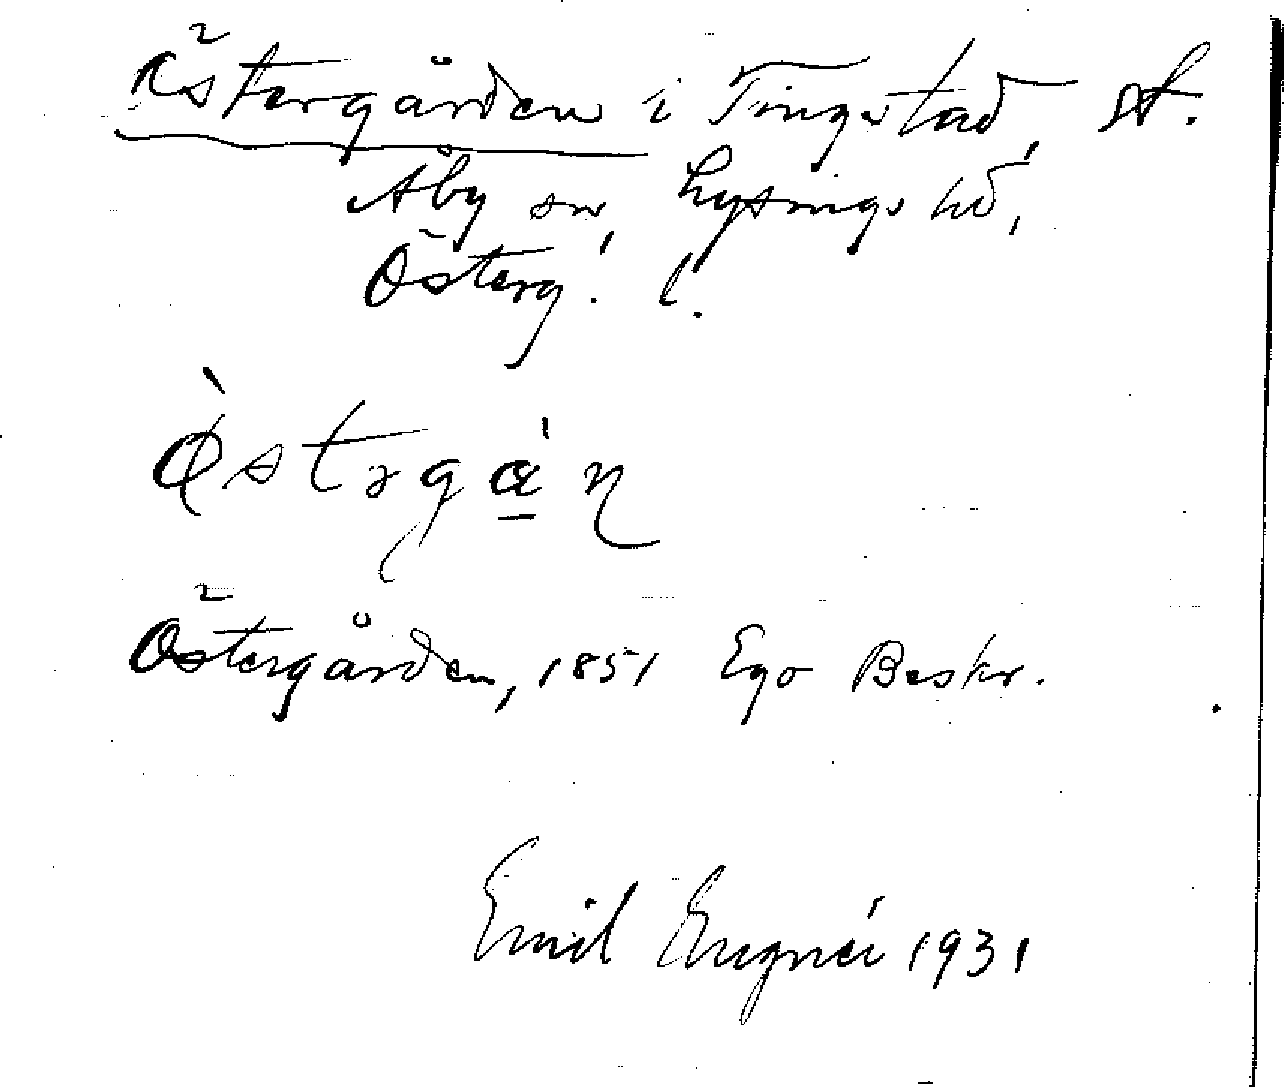 Östergården i Tingstad, St.
Åby sn, Lysings hd,
Österg. l.
Östergården, 1851 Ego Beskr.
Emil 1931